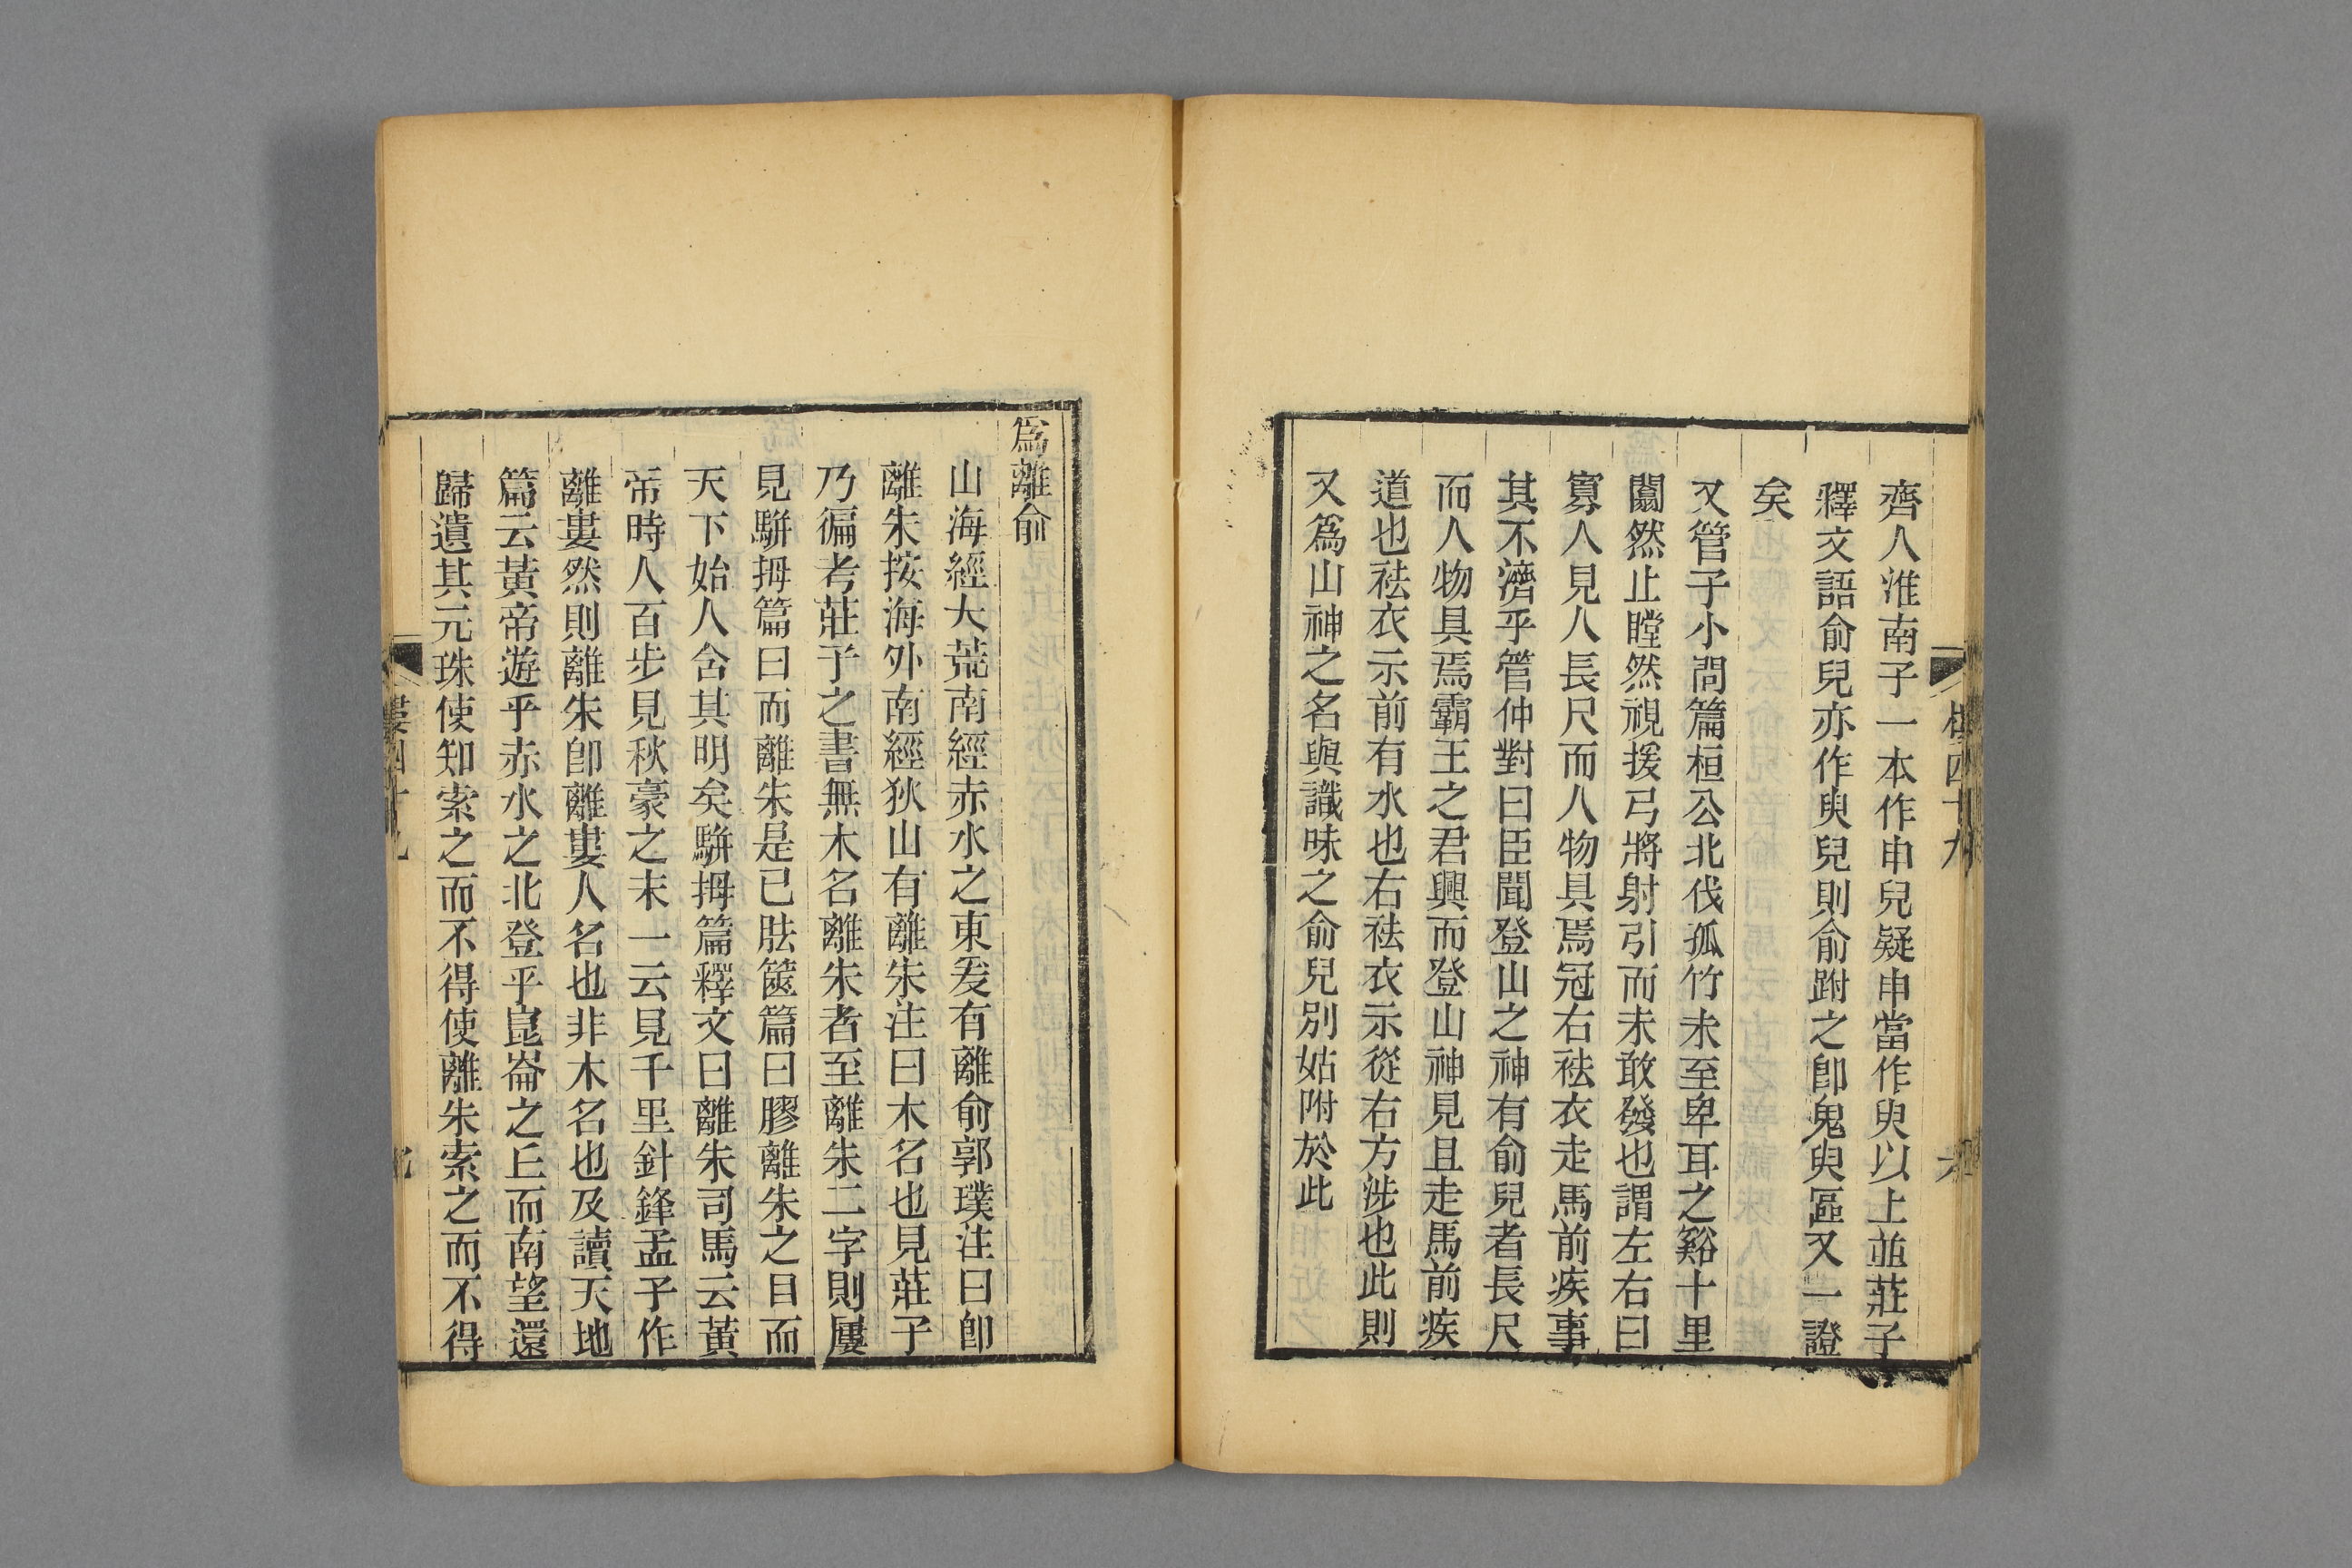 齊人淮南子一本作申兒疑申當作臾以上並莊子
釋文語俞兒亦作臾兒則俞跗之卽鬼臾區又一證
矣
又管子小問篇桓公北伐孤竹未至卑耳之谿十里
闟然止瞠然視援弓將射引而未敢發也謂左右曰
寡人見人長尺而人物具焉冠右祛衣走馬前疾事
其不濟乎管仲對曰臣聞登山之神有俞兒者長尺
而人物具焉霸王之君興而登山神見且走馬前疾
道也祛衣示前有水也右祛衣示從右方涉也此則
又爲山神之名與識味之俞兒別姑附於此
爲離俞
山海經大荒南經赤水之東爰有離俞郭璞注曰卽
離朱按海外南經狄山有離朱注曰木名也見莊子
乃徧考莊子之書無木名離朱者至離朱二字則屢
見駢拇篇曰而離朱是已胠篋篇曰膠離朱之目而
天下始人含其明矣駢拇篇釋文曰離朱司馬云黃
帝時人百步見秋豪之末一云見千里針鋒孟子作
離婁然則離朱卽離婁人名也非木名也及讀天地
篇云黃帝遊乎赤水之北登乎崑崙之丘而南望還
歸遺其元珠使知索之而不得使離朱索之而不得
婁四十九